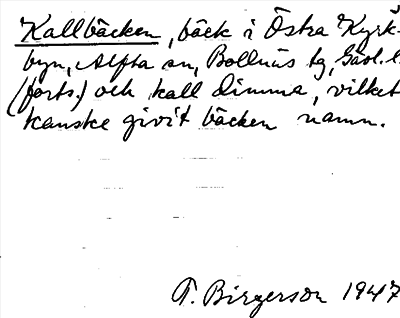 Kallbäcken, bäck i Östra Kyrk-
byn, Alfta sn, Bollnäs tg, Gävl. l.
(forts.) och kall dimma, vilket
kanske givit bäcken namn.
T. Birgerson 1947